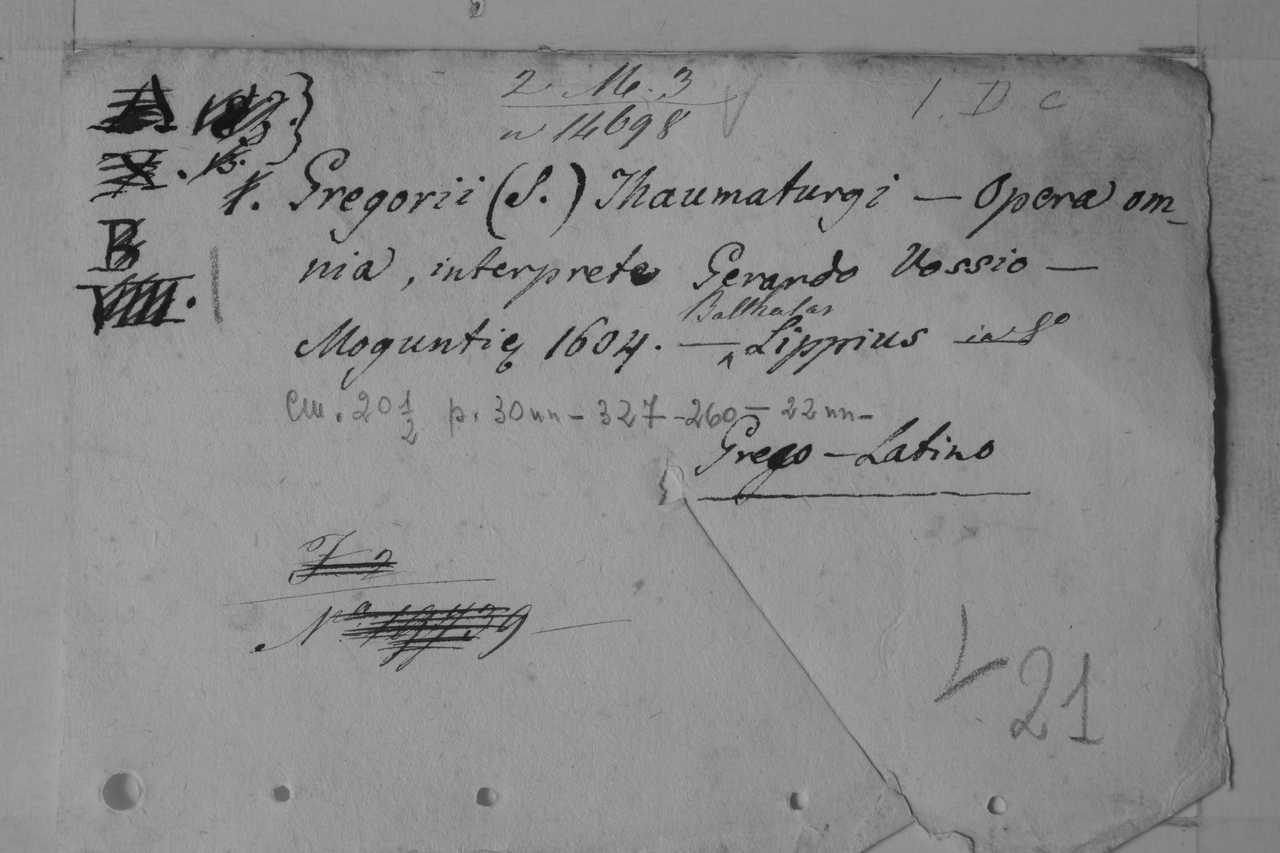 2 M. 3
n 14698
1. D c
A
X.
B
VIII.
Gregorii (S.) Thaumaturgi — Opera om-
nia, interprete Gerardo Vossio —
Balthasar
Moguntię 1604. — Lippius in 8°
Cm. 20 1/2 p. 30nn - 327 - 260 - 22nn -
Greco - Latino
F 2
N° 19739
21